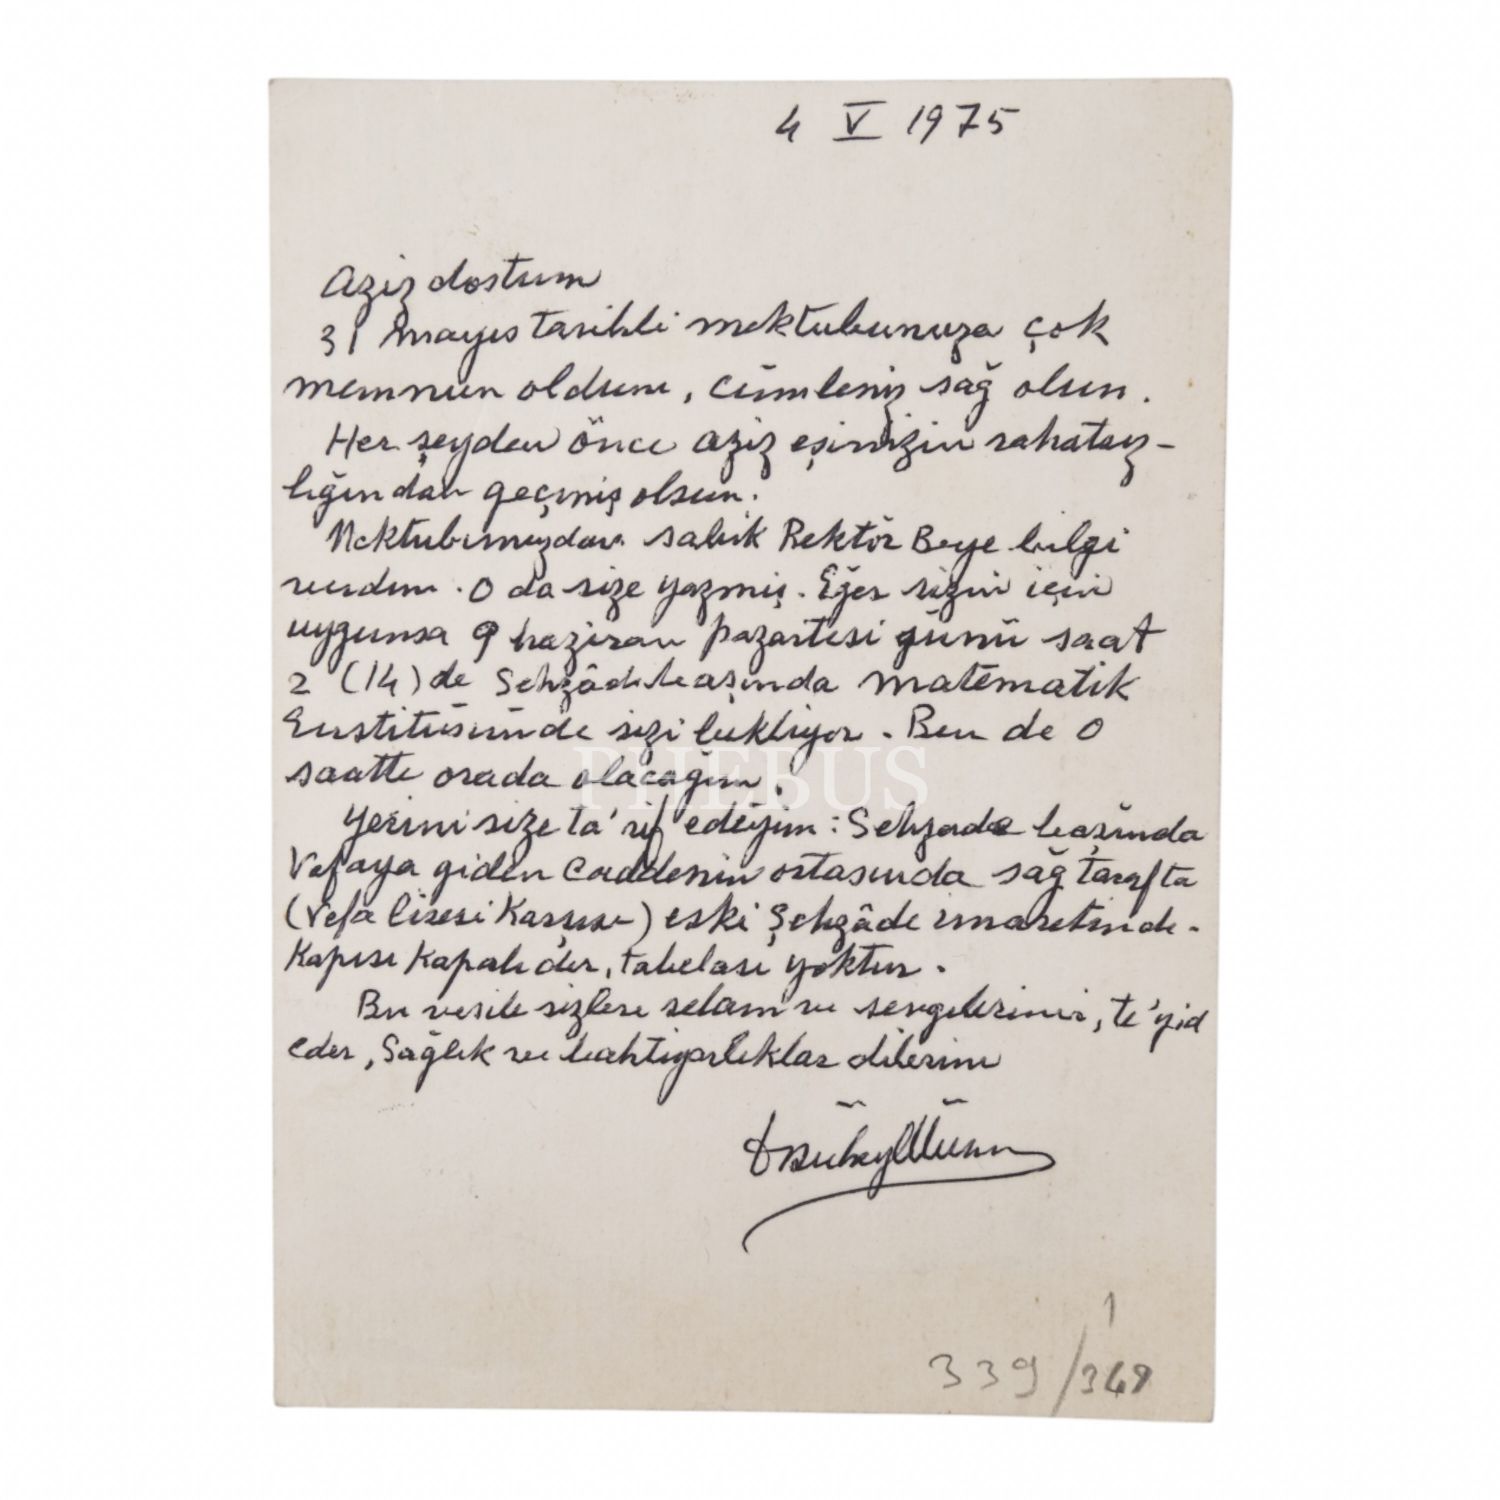 4 V 1975
Aziz dostum
31 mayıs tarihli mektubunuza çok
memnun oldum, cümleniz sağ olsun.
Her şeyden önce aziz eşinizin rahatsız-
lığından geçmiş olsun.
Mektubunuzdan sabık Rektör Beye bilgi
verdim. O da size yazmış. Eğer sizin için
uygunsa 9 haziran pazartesi günü saat
2 (14) de Şehzâdebaşında matematik
Enstitüsünde sizi bekliyor. Ben de o
saatte orada olacağım.
PHEBUS
Yerini size ta'rif edeyim: Şehzadebaşında
Vefaya giden Caddenin ortasında sağ tarafta
(Vefa lisesi Karşısı) eski Şehzâde imaretinde.
Kapısı Kapalıdır, tabelası yoktur.
Bu vesile sizlere selam ve sevgilerimi, te'yid
eder, Sağlık ve bahtiyarlıklar dilerim
Süheyl Ünver
1
339/348